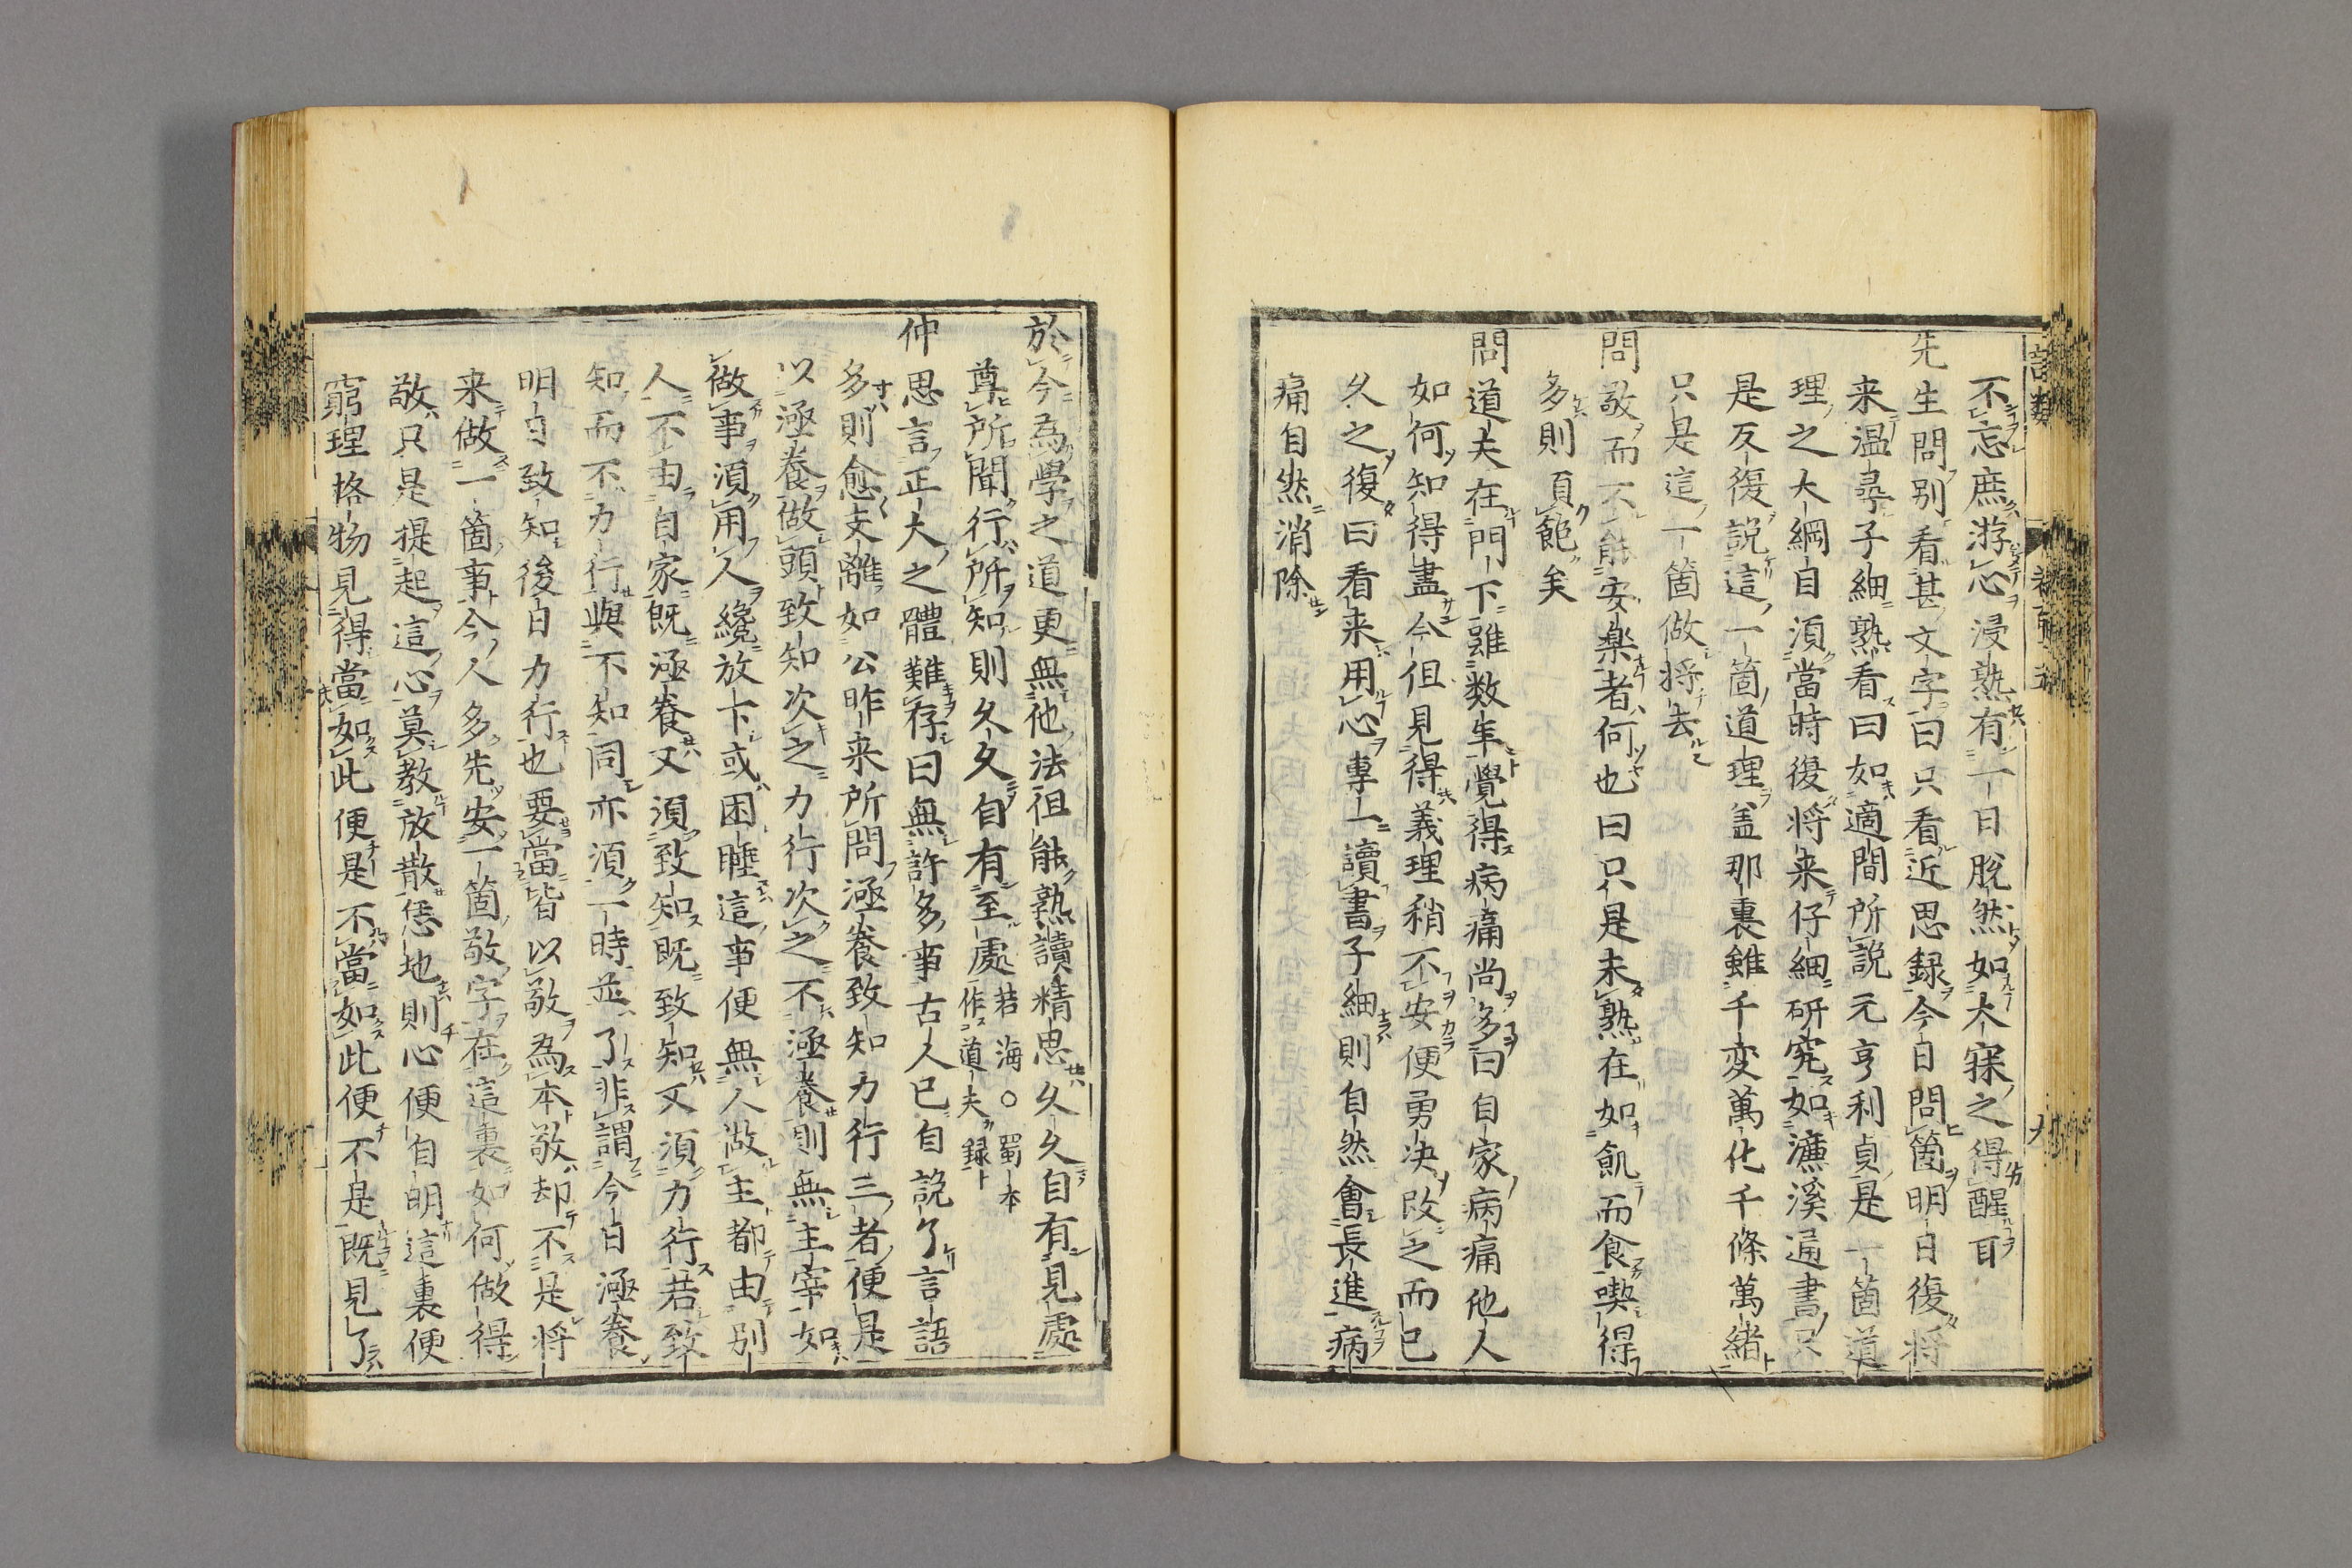 不忘庶游心浸熟有一日脫然如大寐之得醒耳
先生問別看甚文字曰只看近思録今日問箇明日復将
来温尋子細熟看曰如適間所說元亨利貞是一箇道
理之大綱自須當時復将来仔細研究如濂溪通書只
是反復說這一箇道理盖那裏雖千変萬化千條萬緒
只是這一箇做将去
問敬而不能安樂者何也曰只是未熟在如飢而食喫得
多則頁飽矣
問道夫在門下雖数年覺得病痛尚多曰自家病痛他人
如何知得盡今但見得義理稍不安便勇决改之而已
久之復曰看来用心專一讀書子細則自然會長進病
痛自然消除
語類
九
於今為學之道更無他法但能熟讀精思久久自有見處
尊所聞行所知則久久自有至處若海○蜀本作道夫録
仲思言正大之體難存曰無許多事古人已自說了言語
多則愈支離如公昨来所問涵養致知力行三者便是
以涵養做頭致知次之力行次之不涵養則無主宰如
做事須用人纔放下或困睡這事便無人做主都由别
人不由自家既涵養又須致知既致知又須力行若致
知而不力行與不知同亦須一時並了非謂今日涵養
明日致知後日力行也要當皆以敬為本敬却不是将
来做一箇事今人多先安一箇敬字在這裏如何做得
敬只是提起這心莫教放散恁地則心便自明這裏便
窮理格物見得當如此便是不當如此便不是既見了